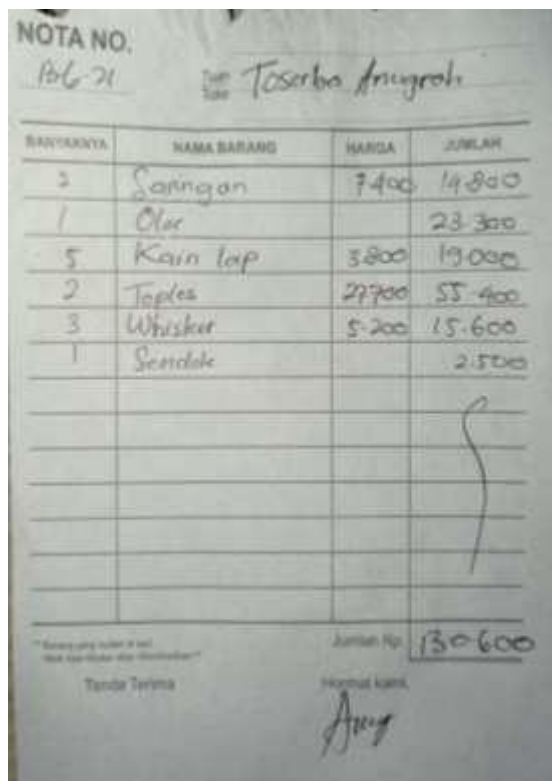 NOTA NO.
Tuan
Toko
Toserba Anugrah
BANYAKNYA NAMA BARANG HARGA JUMLAH
2 Saringan 7400 14.800
1 23.300
5 Kain lap 3.800 19.000
2 Toples 27700 55.400
3 Whisker 5.200 15.600
1 Sendok 2.500
Jumlah Rp. 130.600
Tanda Terima Hormat kami,